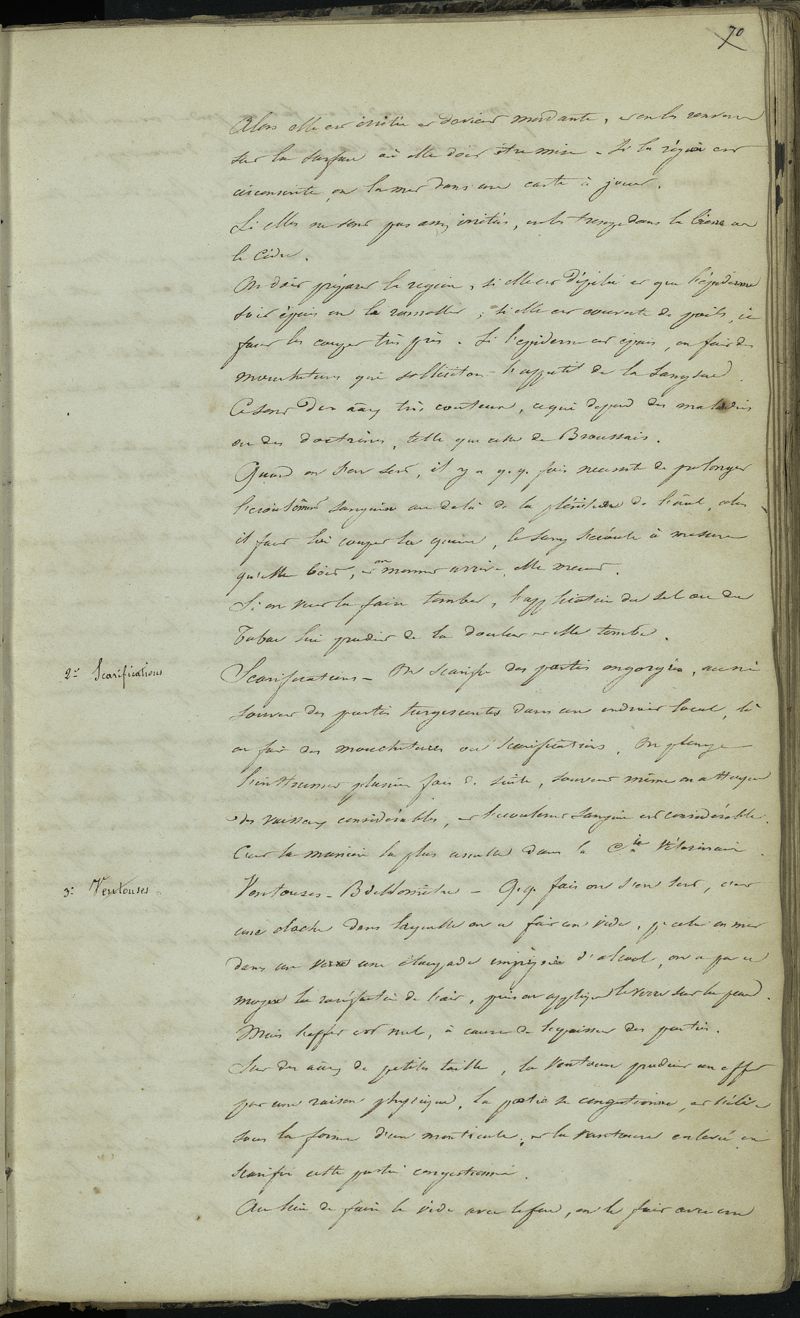 70
Alors elle est irritée et devient mordante, et on les renverse
sur la surface où elle doit être mise. Si la région est
circonscrite, on la met dans une carte à jouer.
Si elles ne sont pas assez irritées, on les trempe dans la bière ou
le Cidre.
On doit préparer la région, si elle est dépilée et que l'épiderme
soit épais on la ramollit ; si elle est couverte de poils, il
faut les couper très près. Si l'épiderme est épais, on fait des
mouchetures qui sollicitent l'appétit de la Sangsue.
Ce sont des très couteux, ce qui dépend des maladies
ou des doctrines, telle que celle de Broussais.
Quand on s'en sert, il y a q.q. fois nécessité de prolonger
l'écoulement sanguin au delà de la plénitude de alors
il faut lui couper la queue, le sang s'écoule à mesure
qu'elle boit, et un moment arrive, elle meurt.
Si on veut la faire tomber, l'application du sel ou du
Tabac lui produit de la douleur et elle tombe.
2° Scarifications
Scarifications – On scarifie des parties engorgées, aussi
souvent des parties turgescentes dans un endroit local, là
on fait des mouchetures ou Scarifications. On plonge
l'instrument plusieurs fois de suite, souvent même on attaque
des vaisseaux considérables, et l'écoulement sanguin est considérable.
C'est la manière la plus usuelle dans la C.ie Vétérinaire.
3° Ventouses
Ventouses – Bdellomètre – Q.q. fois on s'en sert, c'est
une cloche dans laquelle on a fait un vide, p. cela on met
dans un verre une étoupade imprégnée d'alcool, on a par ce
moyen la raréfaction de l'air, puis on applique le verre sur la peau.
Mais l'effet est nul, à cause de l'épaisseur des parties.
Sur des de petites taille, la Ventouse produit un effet
par une raison physique. La partie se congestionne, et s'élève
sous la forme d'un monticule, et la ventouse enlevée on
scarifie cette partie congestionné.
Au lieu de faire le vide avec le feu, on le fait avec une